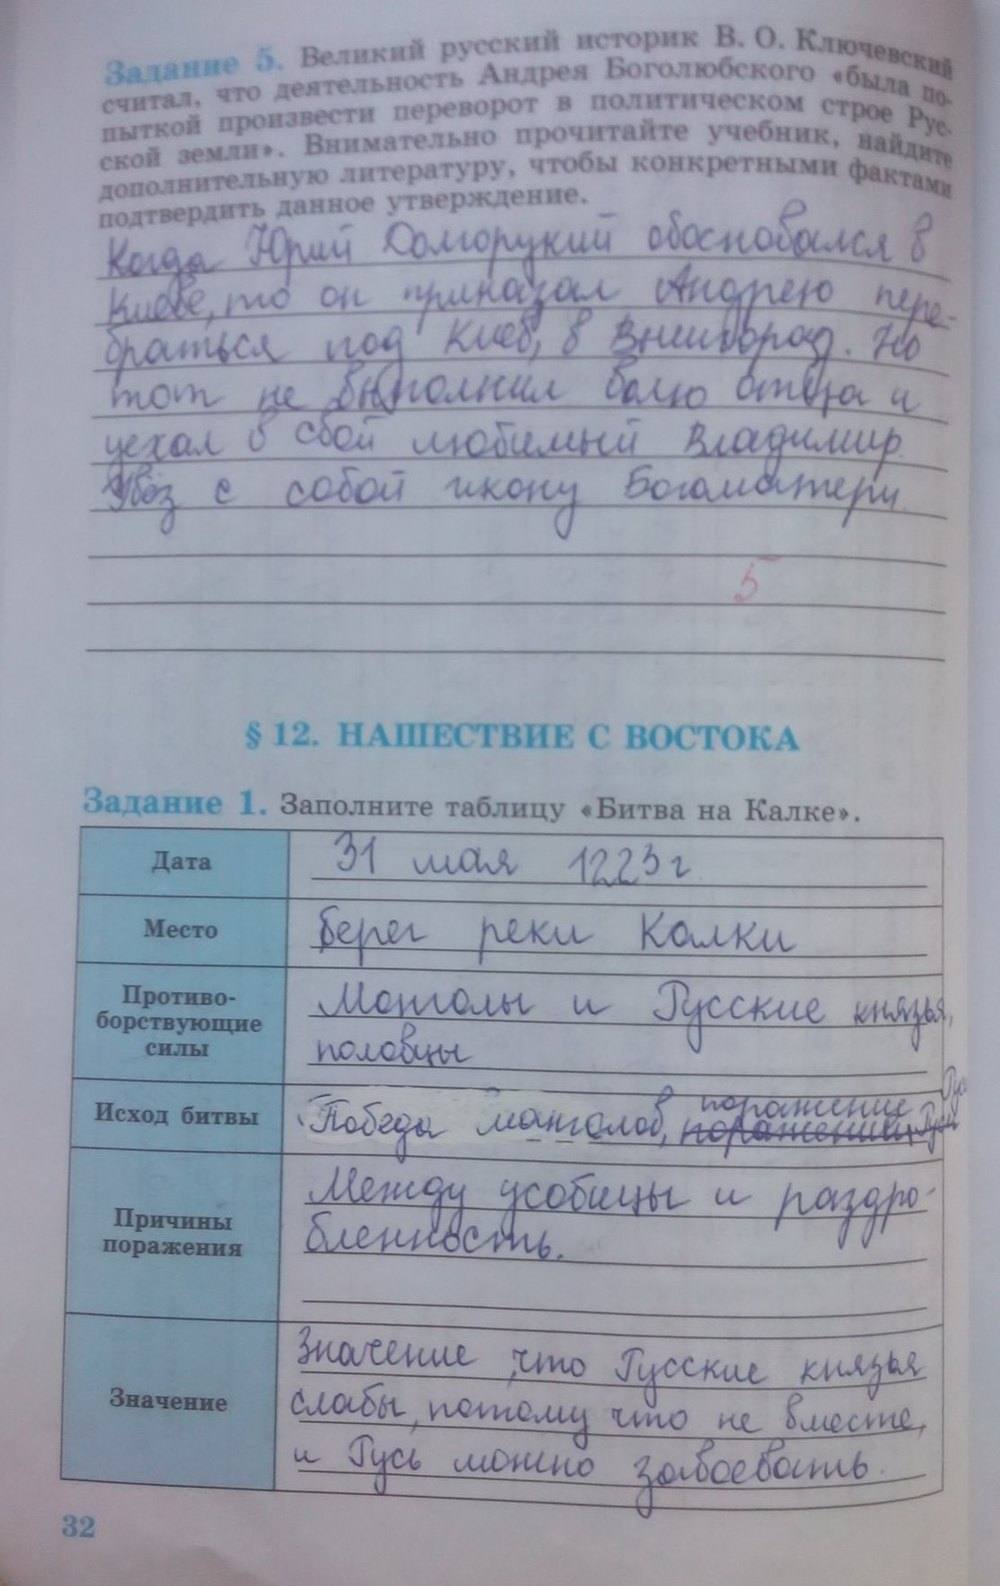 Задание 5. Великий русский историк В. О. Ключевский
считал, что деятельность Андрея Боголюбского «была по-
пыткой произвести переворот в политическом строе Рус-
ской земли». Внимательно прочитайте учебник, найдите
дополнительную литературу, чтобы конкретными фактами
подтвердить данное утверждение.
Когда Юрий Долгорукий обосновался в
Киеве, то он приказал Андрею пере-
браться под Киев, в Вышгород. Но
тот не выполнил волю отца и
уехал в свой любимый Владимир.
Увёз с собой икону Богоматери.
5
§ 12. НАШЕСТВИЕ С ВОСТОКА
Задание 1. Заполните таблицу «Битва на Калке».
Дата
31 мая 1223 г
Место
берег реки Калки
Противо-
борствующие
силы
Монголы и Русские князья,
половцы
Исход битвы
поражение
Победа монголов,
Причины
поражения
Между усобицы и раздро-
бленность.
Значение
Значение, что Русские князья
слабы, потому что не вместе,
и Русь можно завоевать.
32